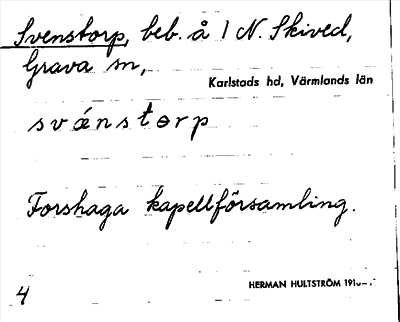 Svenstorp, beb. å 1 N. Skived,
Grava sn,
Karlstads hd, Värmlands län
svǽnstɵrp
Forshaga kapellförsamling.
HERMAN HULTSTRÖM
4